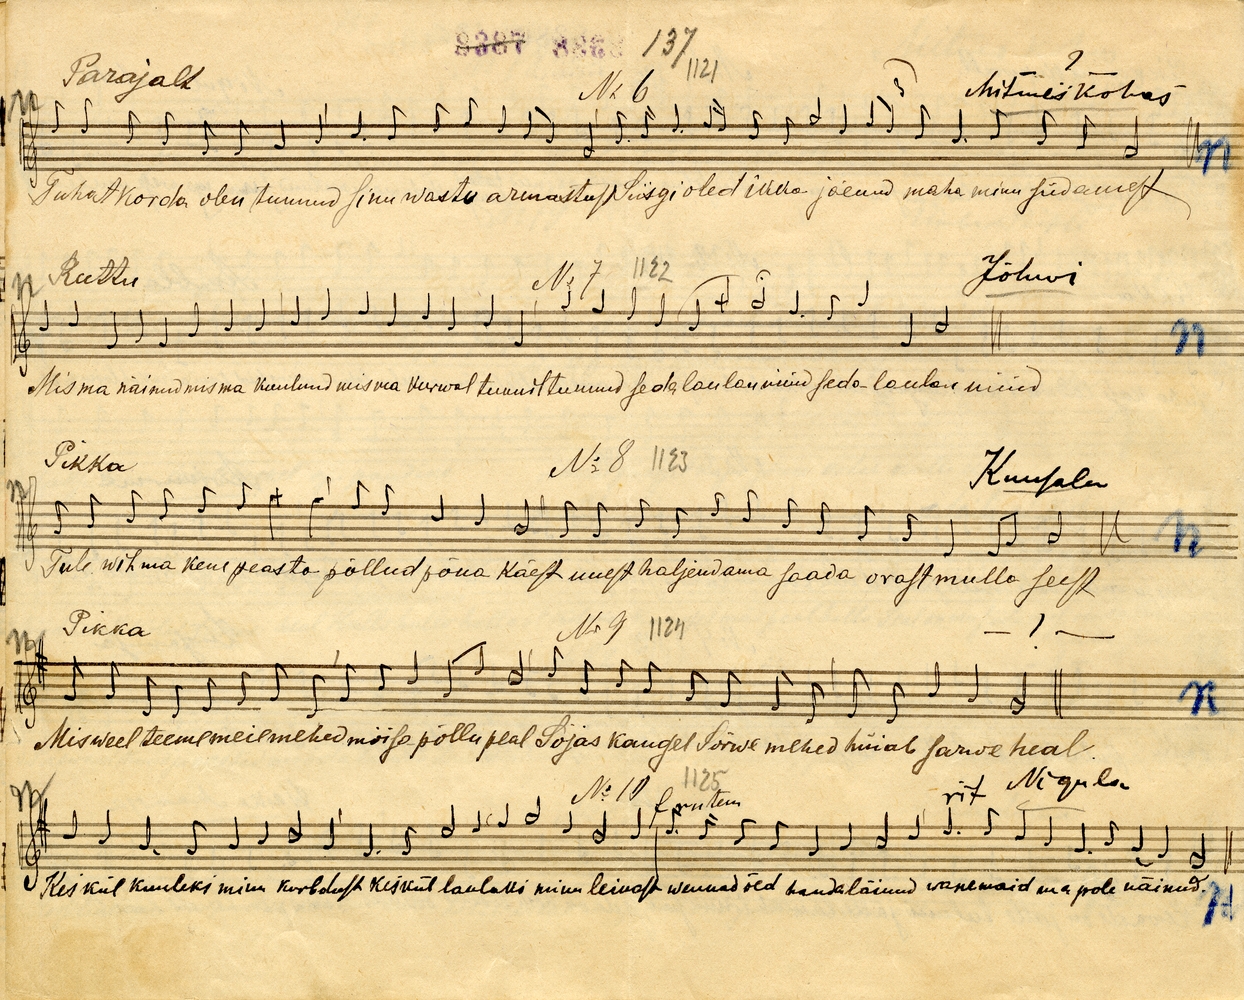 8387 8268 137
Parajalt № 6 1121 ? Mitmeis Kohas
Tuhat korda olen tunnud sinu wastu armastust Siisgi oled ikka jäenud maha minu südamest
Ruttu № 7 1122 Jõhwi
Mis ma näinud mis ma kuulnud mis ma kurwal tunnil tunnud seda laulan nüüd seda laulan nüüd
Pikka № 8 1123 Kuusalu
Tule wihma kene peasta põllud põua käest uuest haljendama saada orast mulla seest
Pikka № 9 1124 — ? —
Mis weel teeme meie mehed mõisa põllu peal Sõjas kaugel Sõrwe mehed hüiab sarwe heal.
№ 10 1125 rutem rit Nigula
Kes küll kuuleks minu kurbdust kes küll lauluks minu leinast wennad õed hauda läinud wanemaid ma pole näinud.